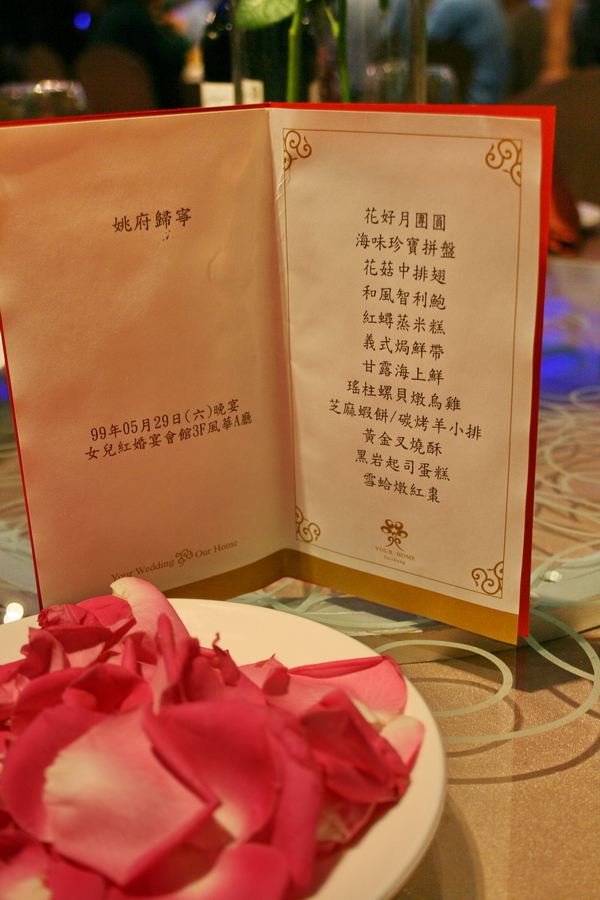 姚府歸寧
99年05月29日(六)晚宴
女兒紅婚宴會館3F風華A廳
Your Wedding Our Home
花好月團圓
海味珍寶拼盤
花菇中排翅
和風智利鮑
紅蟳蒸米糕
義式焗鮮帶
甘露海上鮮
瑤柱螺貝燉烏雞
芝麻蝦餅/碳烤羊小排
黃金叉燒酥
黑岩起司蛋糕
雪蛤燉紅棗
YOUR HOME